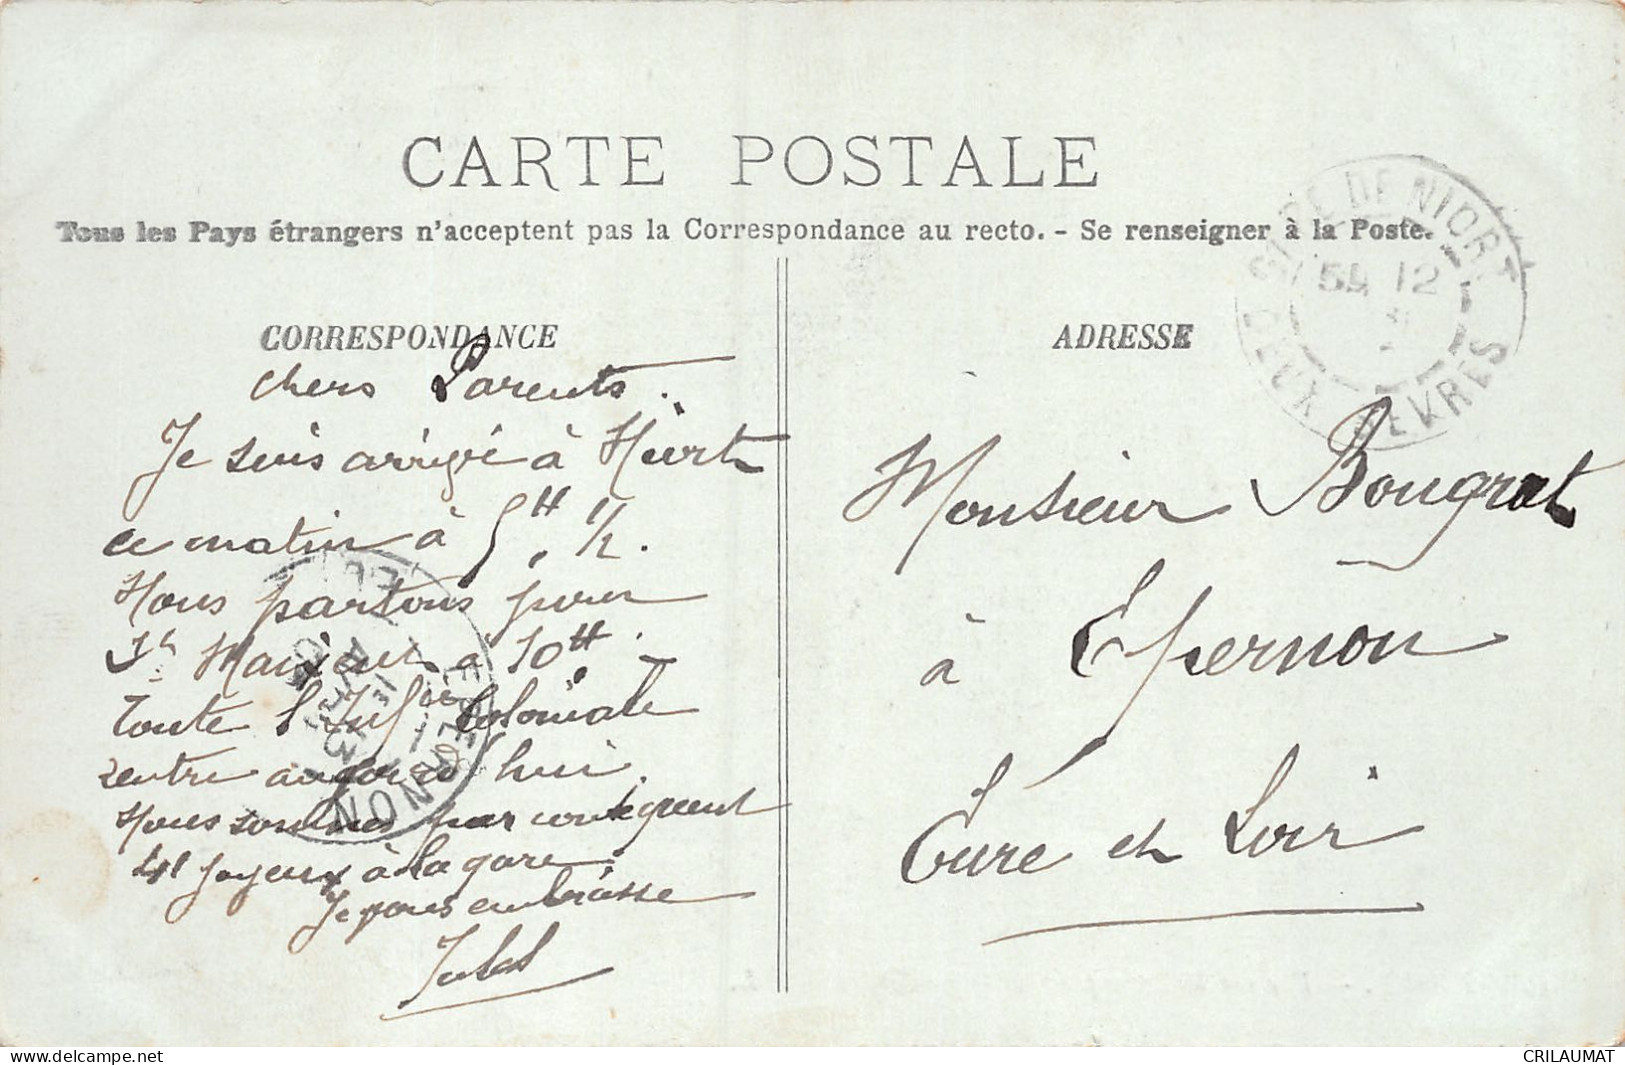 CARTE POSTALE
Tous les Pays étrangers n'acceptent pas la Correspondance au recto. - Se renseigner à la Poste.
CORRESPONDANCE
chers Parents.
Je suis arrivé à Niort
ce matin à 5H. 1/2.
Nous partons pour
St Maixent à 10H.
Toute l'Infrie Coloniale
rentre aujourd'hui.
Nous sommes par conséquent
41 joyeux à la gare.
Je vous embrasse
Jules
ADRESSE
Monsieur Bougrat
à Epernon
Eure et Loir
GARE DE NIORT
DEUX SEVRES
12
EPERNON
CRILAUMAT